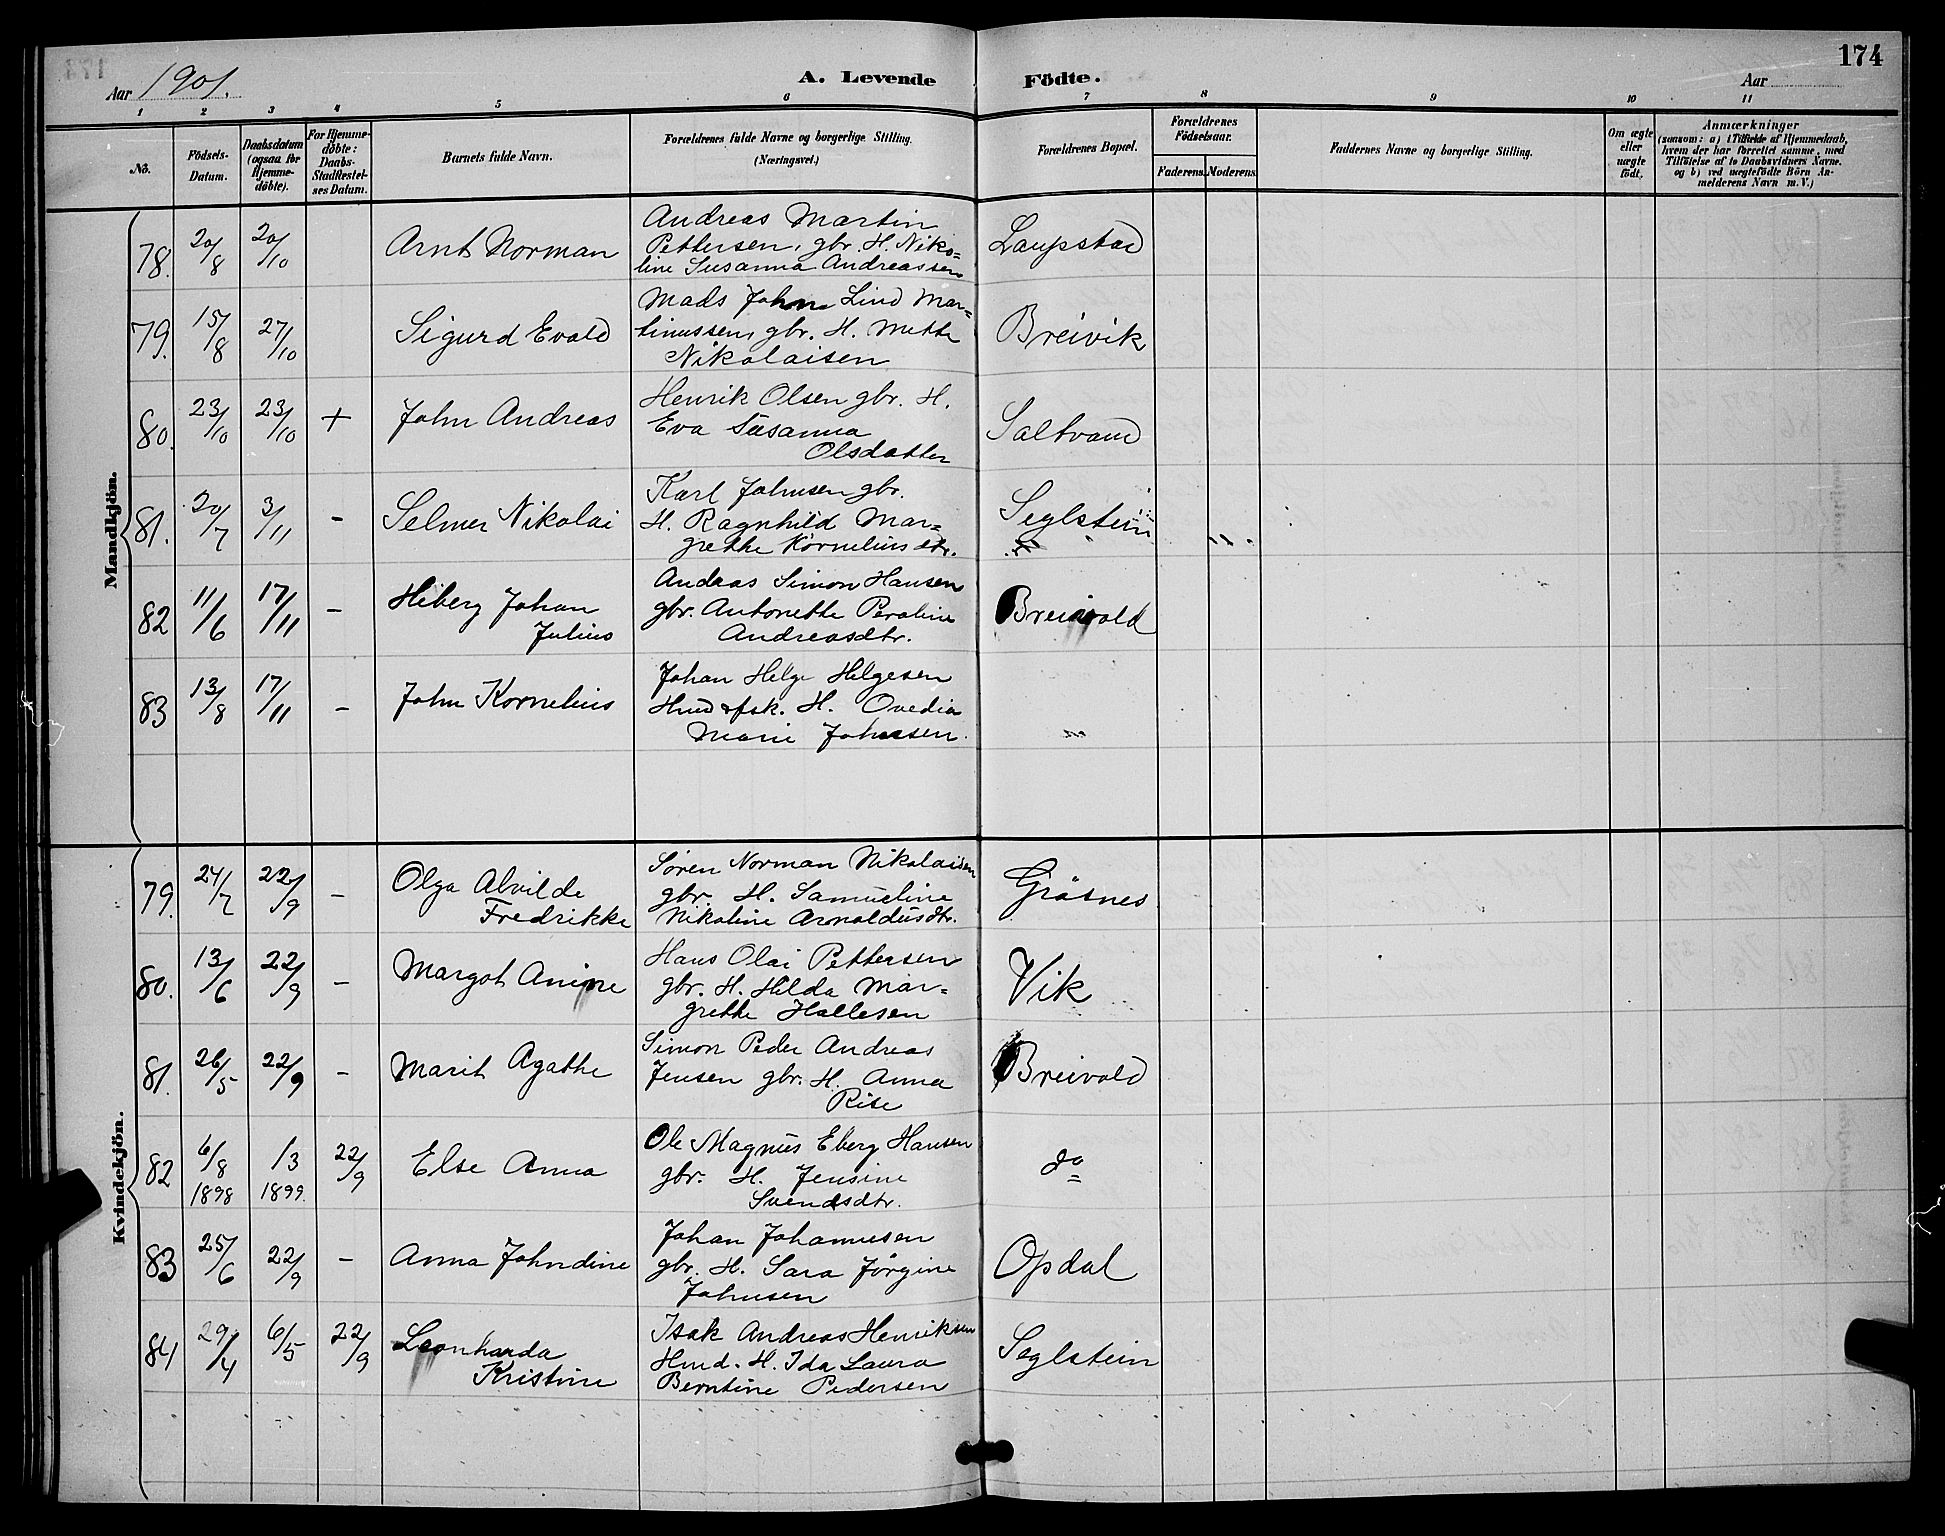 174
Aar 1901.
A. Levende Födte.
Aar
1 2 3 4 5 6 7 8 9 10 11
No.
Födsels-Datum.
Daabsdatum (ogsaa for Hjemme-döbte).
For Hjemme-döbte: Daabs-Stadfæstel-ses Datum.
Barnets fulde Navn.
Forældrenes fulde Navne og borgerlige Stilling. (Næringsvei.)
Forældrenes Bopæl.
Forældrenes Födselsaar.
Faderens. Moderens.
Faddernes Navne og borgerlige Stilling.
Om ægte eller uægte födt.
Anmærkninger
(saasom: a) i Tilfælde af Hjemmedaab,
hvem der har forrettet samme, med
Tilföielse af to Daabsvidners Navne.
og b) ved uægtefödte Börn An-
melderens Navn m. V.)
Mandkjön.
78. 20/8 20/10 Arnt Norman
Andreas Martin
Pettersen, gbr. H. Niko=
line Susanna Andreassen
Laupstad
79. 15/8 27/10 Sigurd Evald
Mads Johan Lind Mar=
tinussen, gbr. H. Mette
Nikolaisen
Breivik
80. 23/10 23/10 + John Andreas
Henrik Olsen gbr. H.
Eva Susanna
Olsdatter
Saltvand
81. 20/7 3/11 - Selmer Nikolai
Karl Johnsen gbr.
H. Ragnhild Mar=
grethe Kornelius dtr.
Seglstein
82 11/6 17/11 - Hiberg Johan
Julius
Andeas Simon Hansen
gbr. Antonette Peroline
Andreasdtr.
Breivold
83 13/8 17/11 - John Kornelius
Johan Helge Helgesen
Hmd & fsk. H. Ovedia
Marie Johnsen.
Kvindekjön.
79. 24/7 22/9 - Olga Alvilde
Fredrikke
Sören Norman Nikolaisen
gbr. H. Samueline
Nikoline Arnoldusdtr.
Gråsnes
80. 13/6 22/9 - Margot Anine
Hans Olai Pettersen
gbr. H. Hilda Mar=
grethe Hallesen
Vik
81. 26/5 22/9 - Marit Agathe
Simon Peder Andreas
Jensen gbr. H. Anna
Rise
Breivold
82 6/8 1898 1/3 1899. 22/9 Else Anna
Ole Magnus Eberg Hansen
gbr. H. Jensine
Svendsdtr.
do
83 25/6 22/9 - Anna Johndine
Johan Johannesen
gbr. H. Sara Jørgine
Johnsen
Opdal
84 29/4 6/5 22/9 Leonharda
Kristine
Isak Andreas Henriksen
Hmd. H. Ida Laura
Berntine Pedersen
Seglstein